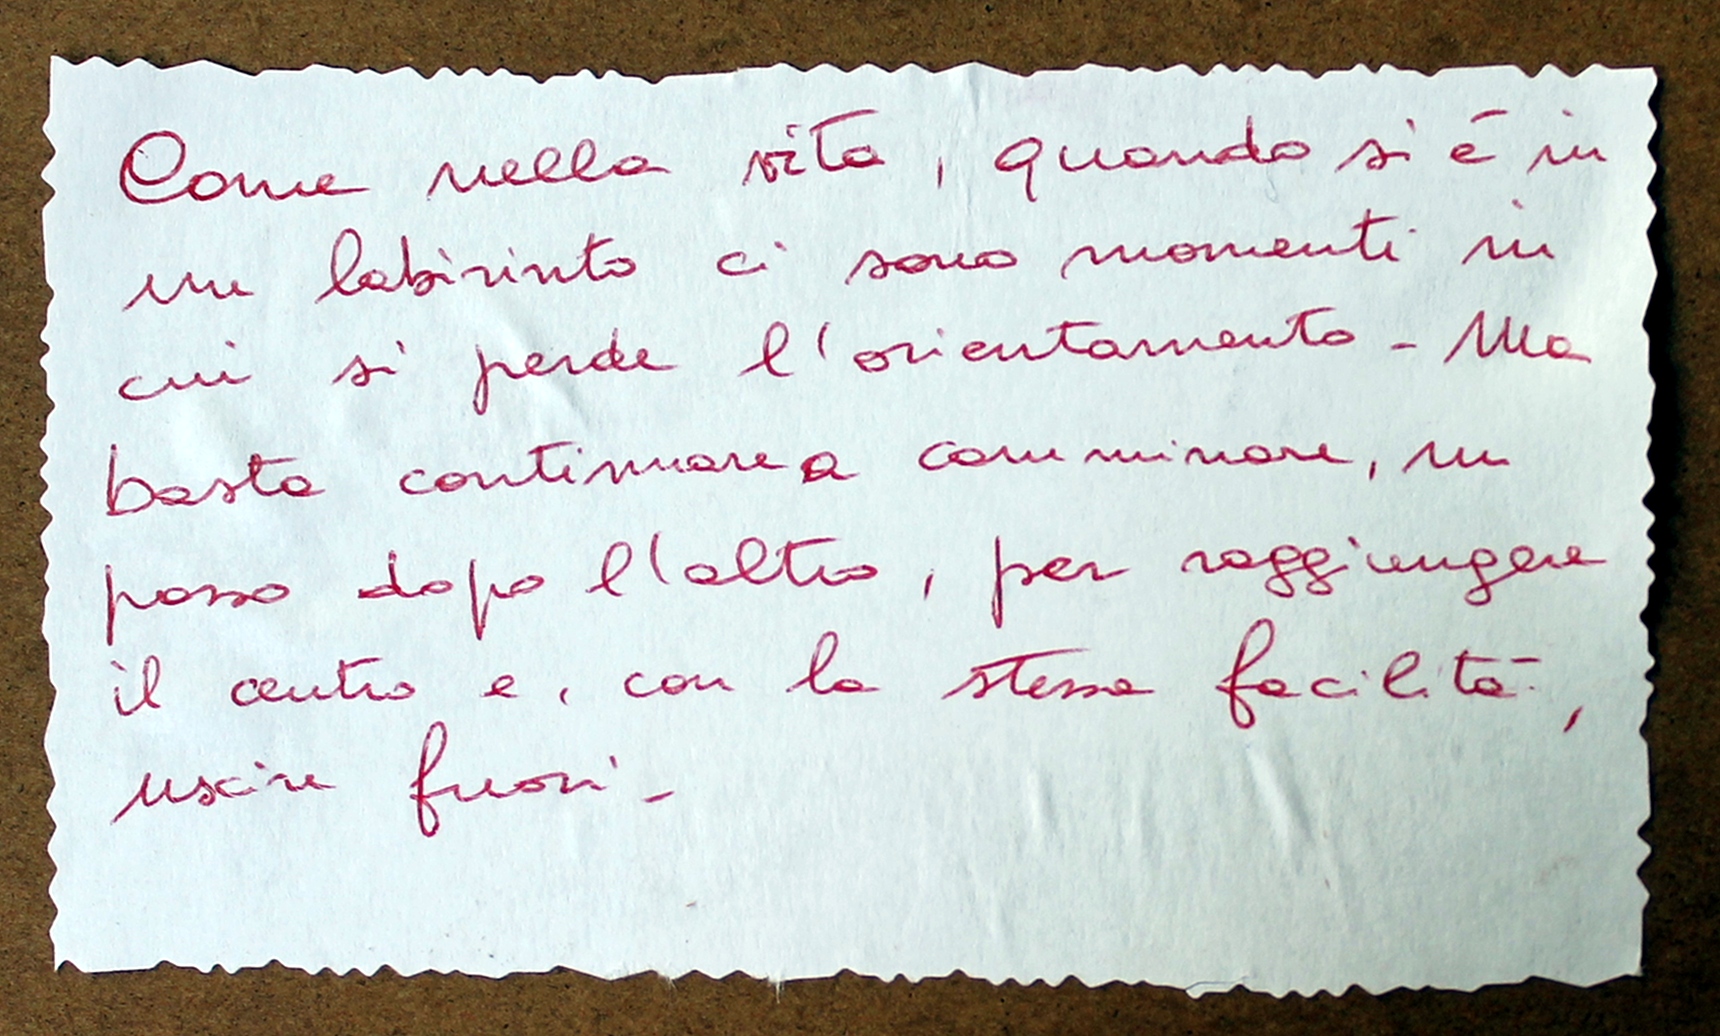 Come nella vita, quando si è in
un labirinto ci sono momenti in
cui si perde l'orientamento - Ma
basta continuare a camminare, un
passo dopo l'altro, per raggiungere
il centro e, con la stessa facilità,
uscire fuori -